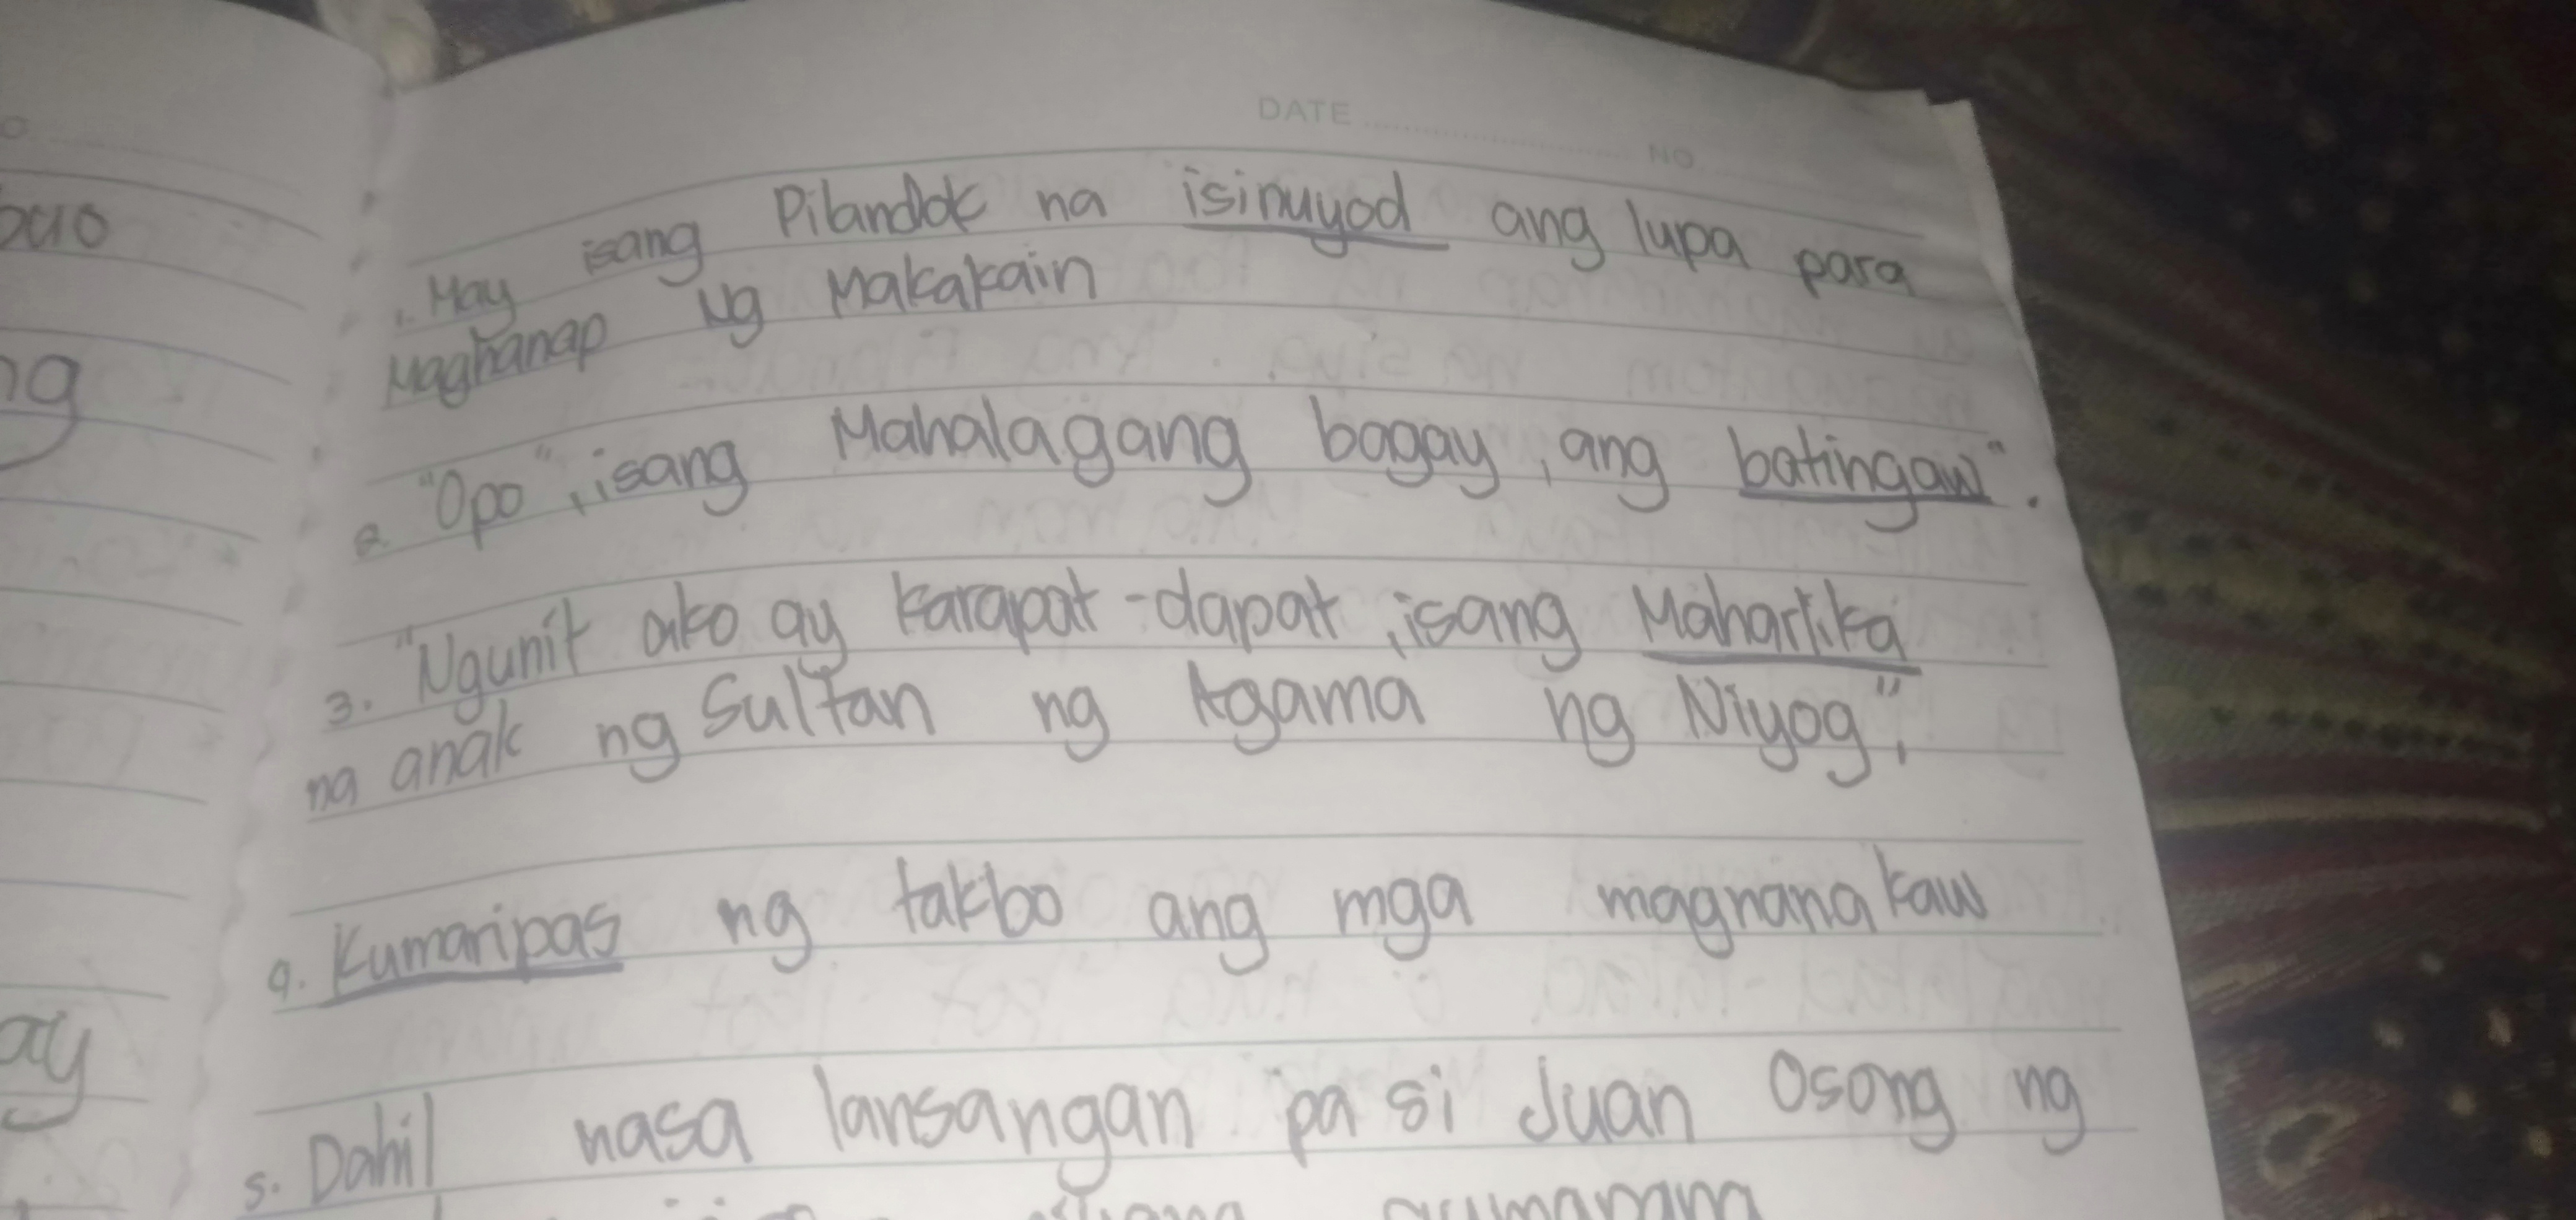 DATE
NO
1. May isang Pilandok na isinuyod ang lupa para
Maghanap Ng Makakain
2. "Opo", isang Mahalagang bagay, ang batingaw".
3. "Ngunit ako ay karapat-dapat, isang Maharlika
na anak ng Sultan ng Agama ng Niyog".
4. Kumaripas ng takbo ang mga magnanakaw
5. Dahil nasa lansangan pa si Juan Osong ng
ng
ay